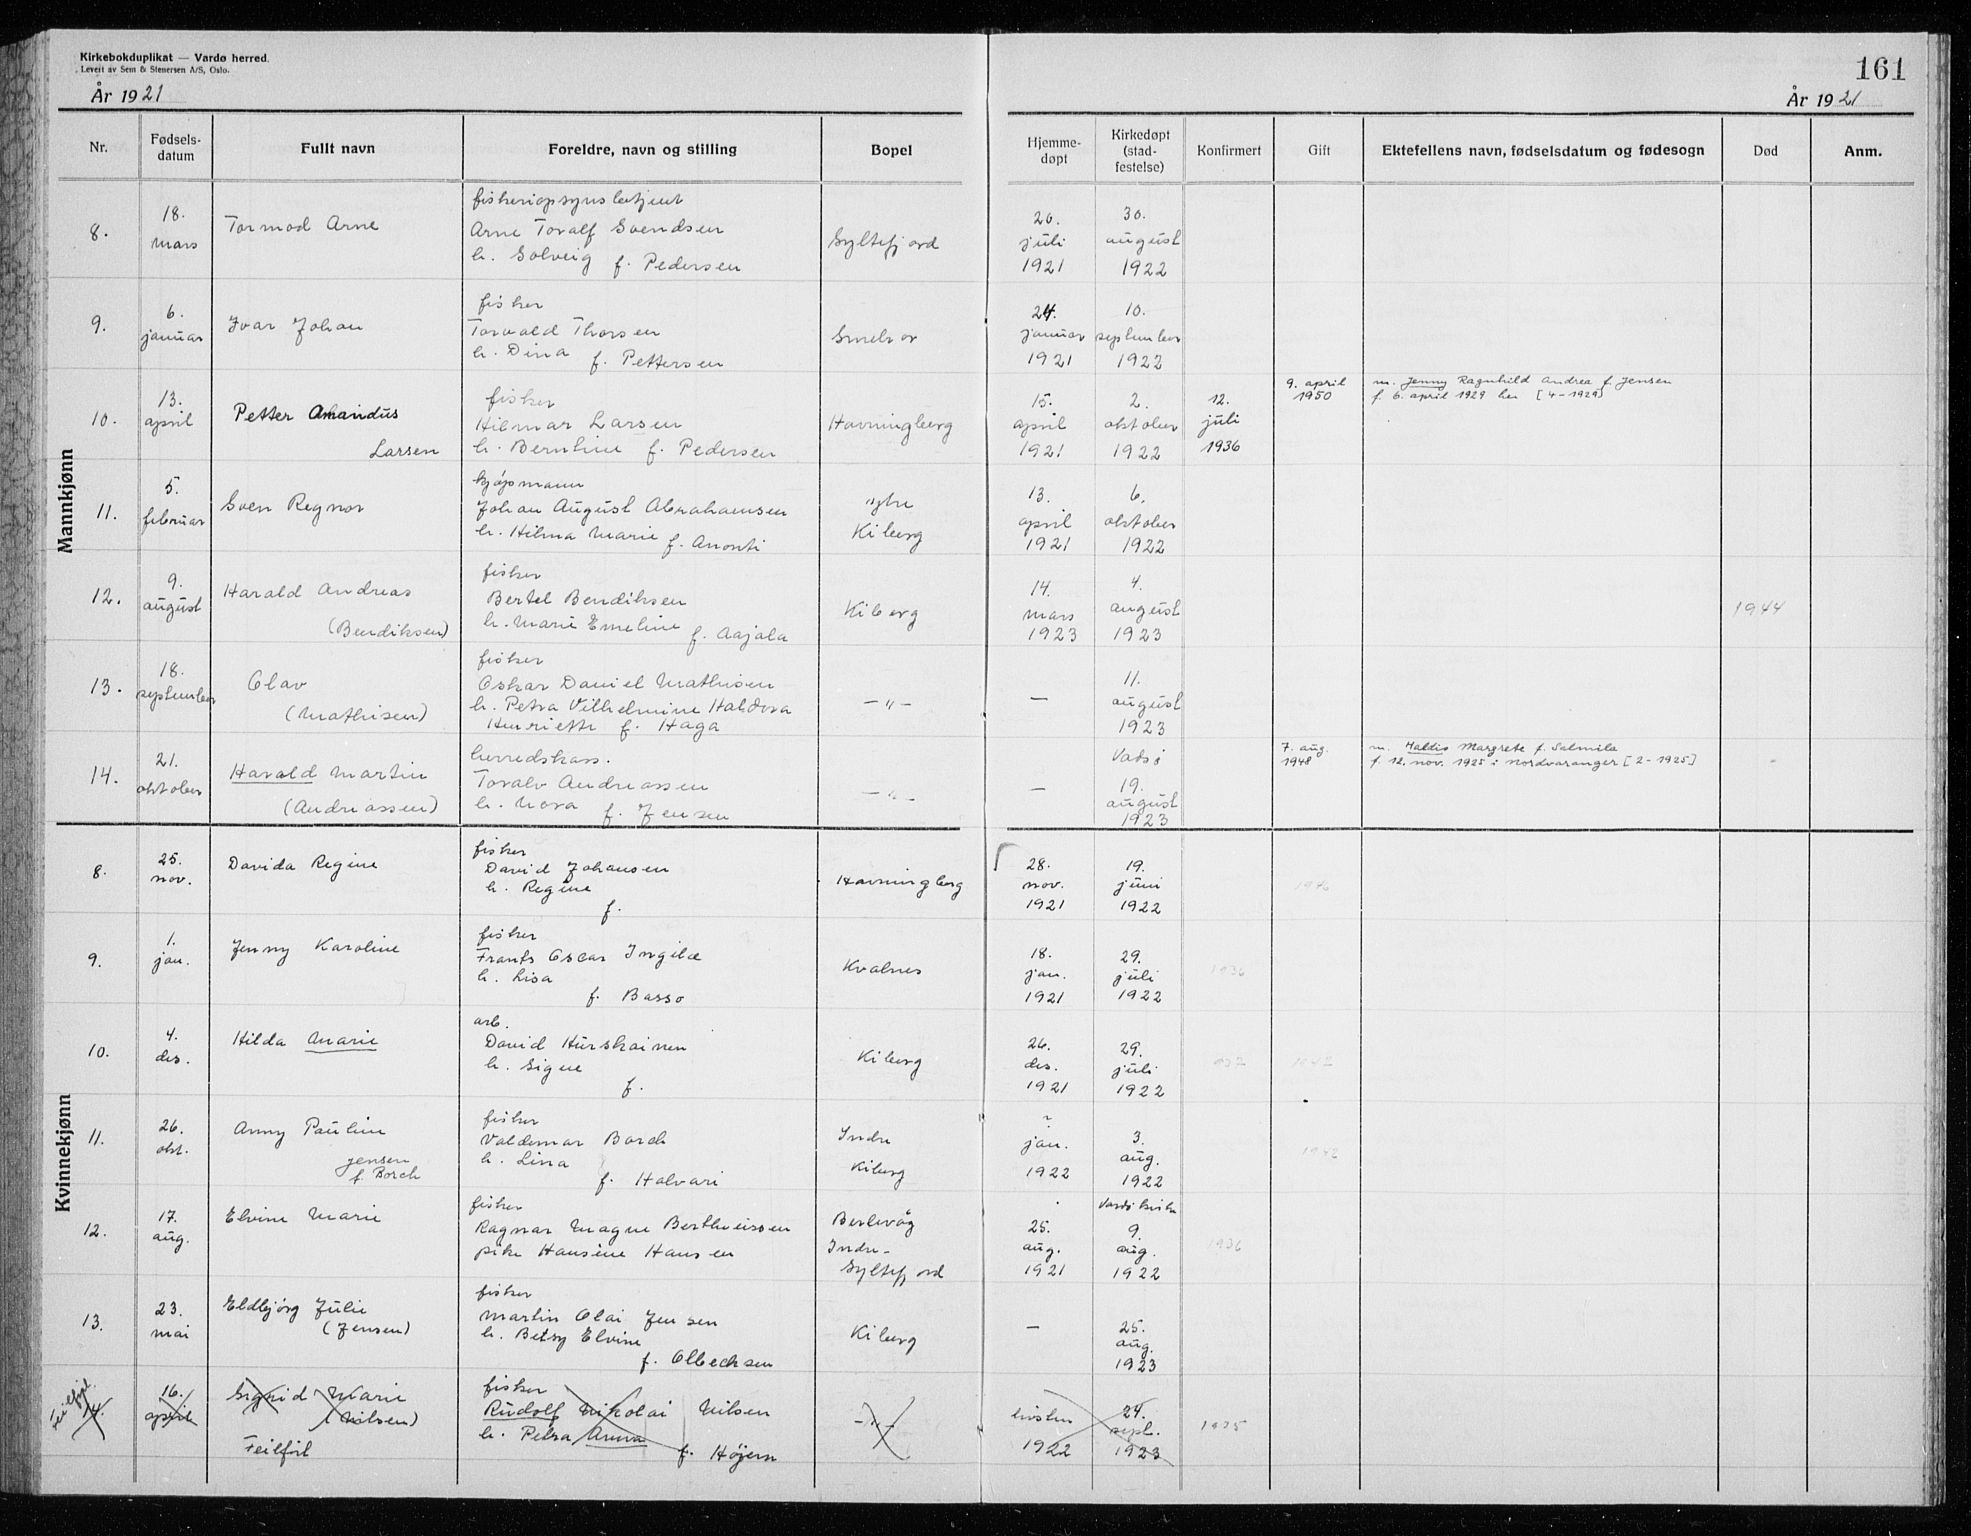 Kirkebokduplikat — Vardø herred.
Levert av Sem & Stenersen A/S, Oslo.
161
År 1921
År 1921
Nr. Fødselsdatum Fullt navn Foreldre, navn og stilling Bopel Hjemmedøpt Kirkedøpt (stadfestelse) Konfirmert Gift Ektefellens navn, fødselsdatum og fødesogn Død Anm.
Mannkjønn
8. 18. mars Tormod Arne
fiskeriopsynsbetjent
Arne Toralf Svendsen
h. Solveig f. Pedersen
Syltefjord
20. juli 1921
30. august 1922
9. 6. januar Ivar Johan
fisker
Torvald Thorsen
h. Dina f. Pettersen
24. januar 1921
10. september 1922
10. 13. april Petter Amandus
Larsen
fisker
Hilmar Larsen
h. Berntine f. Pedersen
Havningberg
15. april 1921
2. oktober 1922
12. juli 1936
9. april 1950
m. Jenny Ragnhild Andrea f. Jensen
f. 6. april 1929 her [4-1929]
11. 5. februar Sven Regnor
kjøpmann
Johan August Abrahamsen
h. Hilma Marie f. Anonti
ytre
Kiberg
13. april 1921
6. oktober 1922
12. 9. august Harald Andreas
(Bendiksen)
fisker
Bertel Bendiksen
h. Marie Emeline f. Aajala
Kiberg
14. mars 1923
4. august 1923
1944
13. 18. september Olav
(Mathisen)
fisker
Oskar Daniel Mathisen
h. Petra Vilhelmine Haldora
Henriette f. Haga
—〃—
—
11. august 1923
14. 21. oktober Harald Martin
(Andreassen)
herredskass.
Toralv Andreassen
h. Nora f. Jensen
—〃—
—
Vadsø
19. august 1923
7. aug. 1948
m. Haldis Margrete f. Salmila
f. 12. nov. 1925 i Nordvaranger [2-1925]
Kvinnekjønn
8. 25. nov. Davida Regine
fisker
David Johansen
h. Regine
f.
Havningberg
28. nov. 1921
19. juni 1922
1946
9. 1. jan. Jenny Karoline
fisker
Frants Oscar Ingilæ
h. Lisa
f. Basso
Kvalnes
18. jan. 1921
29. juli 1922
1936
10. 4. des. Hilda Marie
arb.
David Hurskainen
h. Signe
f.
Kiberg
26. des. 1921
29. juli 1922
1937
1942
11. 26. okt. Anny Pauline
Jensen
f. Borch
fisker
Valdemar Borch
h. Lina
f. Halvari
Indre
Kiberg
? jan. 1922
3. aug. 1922
1942
12. 17. aug. Elvine Marie
fisker
Ragnar Magne Bertheussen
pike Hansine Hansen
Berlevåg
Indre-
Syltefjord
25. aug. 1921
Vardø kirke
9. aug. 1922
1936
13. 23. mai Eldbjørg Julie
(Jensen)
fisker
Martin Olai Jensen
h. Betsy Elvine
f. Olbechsen
Kiberg
—
25. aug. 1923
Feilført
14. 16. april Sigrid Marie
(Nilsen)
Feilført
fisker
Rudolf Nikolai Nilsen
h. Petra Anna
f. Højern
—〃—
høsten 1922
24. sept. 1923
1935